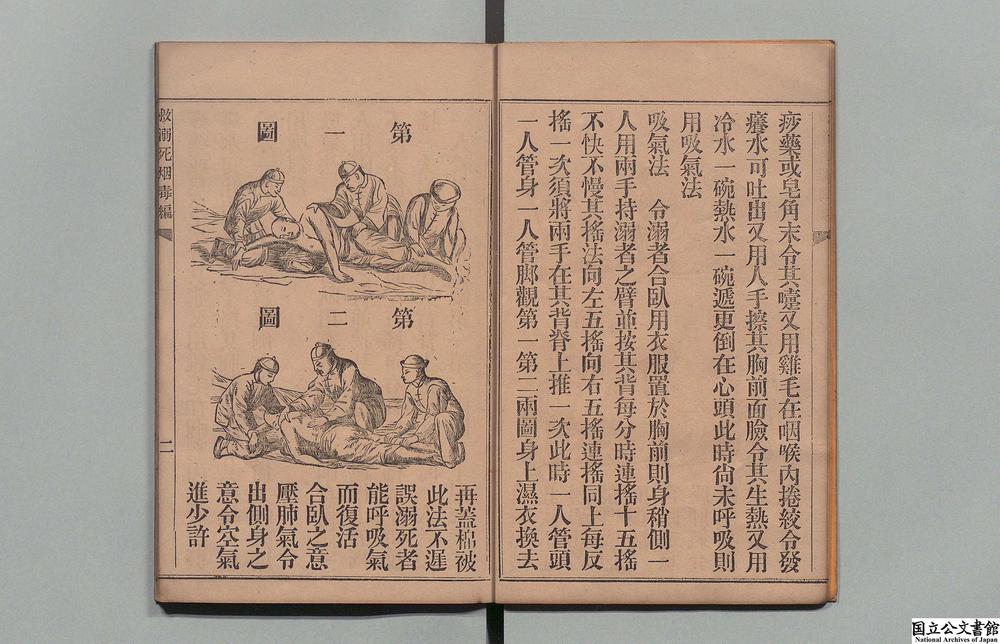 痧藥或皂角末令其嚏又用雞毛在咽喉內捲絞令發
癢水可吐出又用人手擦其胸前面臉令其生熱又用
冷水一碗熱水一碗遞更倒在心頭此時尙未呼吸則
用吸氣法
吸氣法 令溺者合臥用衣服置於胸前則身稍側一
人用兩手持溺者之臂並按其背每分時連搖十五搖
不快不慢其搖法向左五搖向右五搖連搖同上每反
搖一次須將兩手在其背脊上推一次此時一人管頭
一人管身一人管脚觀第一第二兩圖身上濕衣換去
第一圖
第二圖
再蓋棉被
此法不遲
誤溺死者
能呼吸氣
而復活
合臥之意
壓肺氣令
出側身之
意令空氣
進少許
救溺死烟毒編
二
国立公文書館
National Archives of Japan